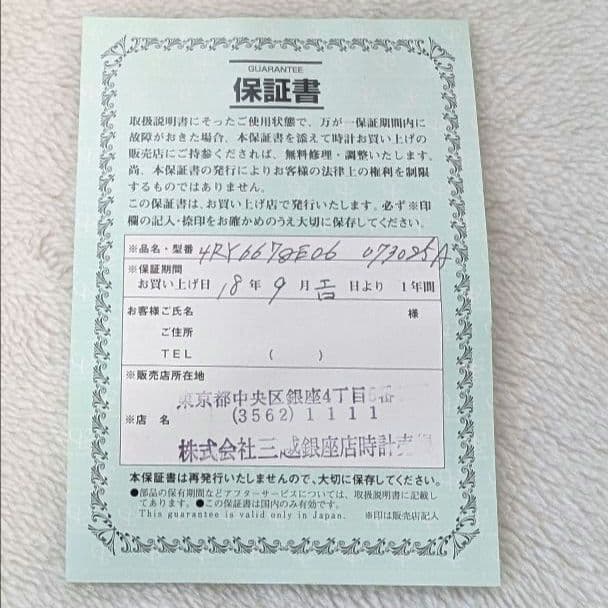 GUARANTEE
保証書
取扱説明書にそったご使用状態で、万が一保証期間内に
故障がおきた場合、本保証書を添えて時計お買い上げの
販売店にご持参くだされば、無料修理・調整いたします。
尚、本保証書の発行によりお客様の法律上の権利を制限
するものではありません。
この保証書は、お買い上げ店で発行いたします。必ず※印
欄の記入・捺印をお確かめのうえ大切に保存してください。
※品名・型番 4RY667 E06 073025A
※保証期間
お買い上げ日 18年9月吉日より 1年間
お客様ご氏名 様
ご住所
TEL ( )
※販売店所在地
東京都中央区銀座4丁目6番
※店名 (3562)1111
株式会社三越銀座店時計売
本保証書は再発行いたしませんので、大切に保存してください。
●部品の保有期間などアフターサービスについては、取扱説明書に記載し
てあります。●この保証書は国内のみ有効です。
This guarantee is valid only in Japan. ※印は販売店記入